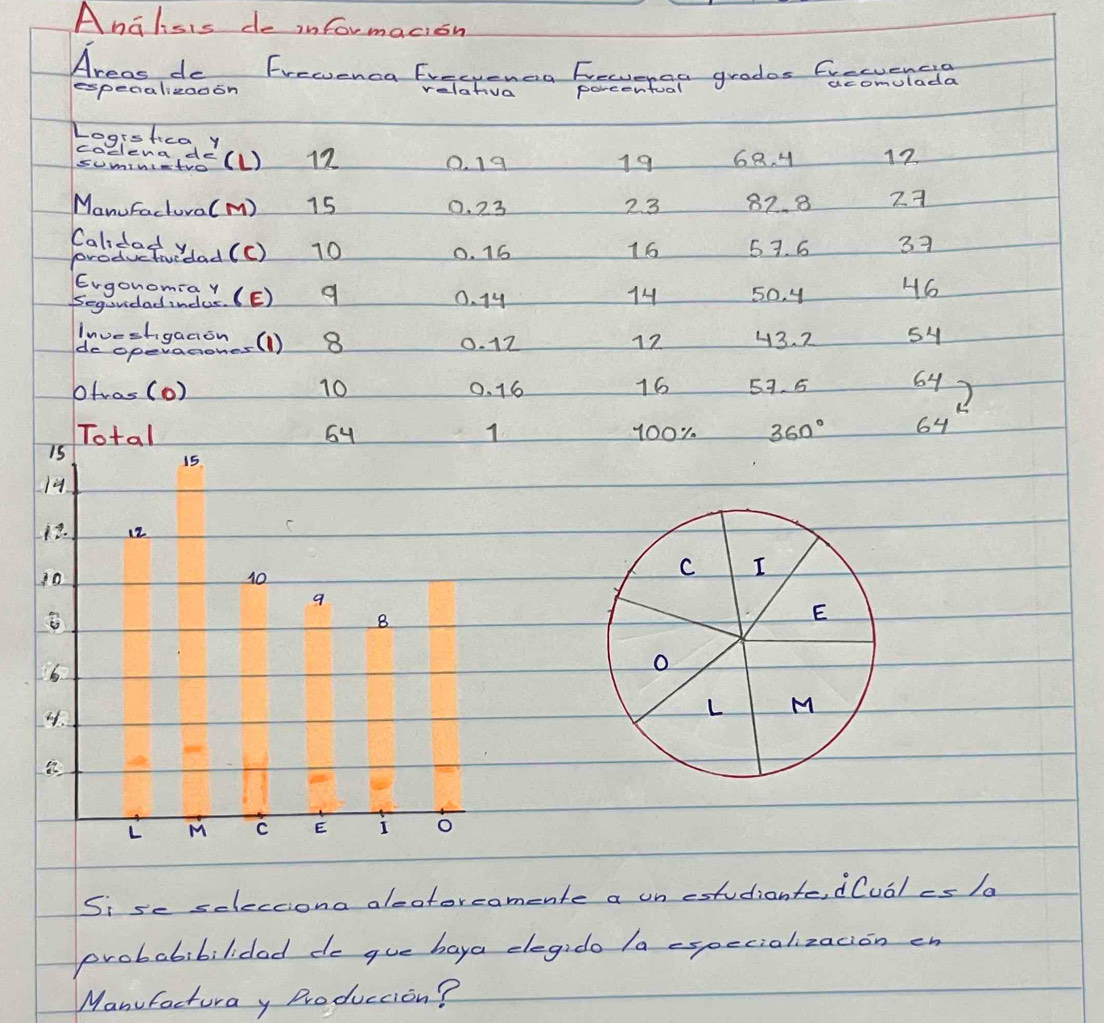 Análisis de información
Áreas de especialización Frecuencia Frecuencia relativa Frecuencia porcentual grados Frecuencia acomulada
Logística y cadena de suministro (L) 12 0.19 19 68.4 12
Manufactura (M) 15 0.23 23 82.8 27
Calidad y productividad (C) 10 0.16 16 57.6 37
Ergonomía y Seguridad indus. (E) 9 0.14 14 50.4 46
Investigación de operaciones (I) 8 0.12 12 43.2 54
Otras (O) 10 0.16 16 57.6 64
Total 64 1 100% 360° 64
15
14
12
10
8
6
4
2
12
15
10
9
8
L M C E I O
C I
E
O
L M
Si se selecciona aleatoreamente a un estudiante, ¿Cuál es la
probabibilidad de que haya elegido la especialización en
Manufactura y Producción?